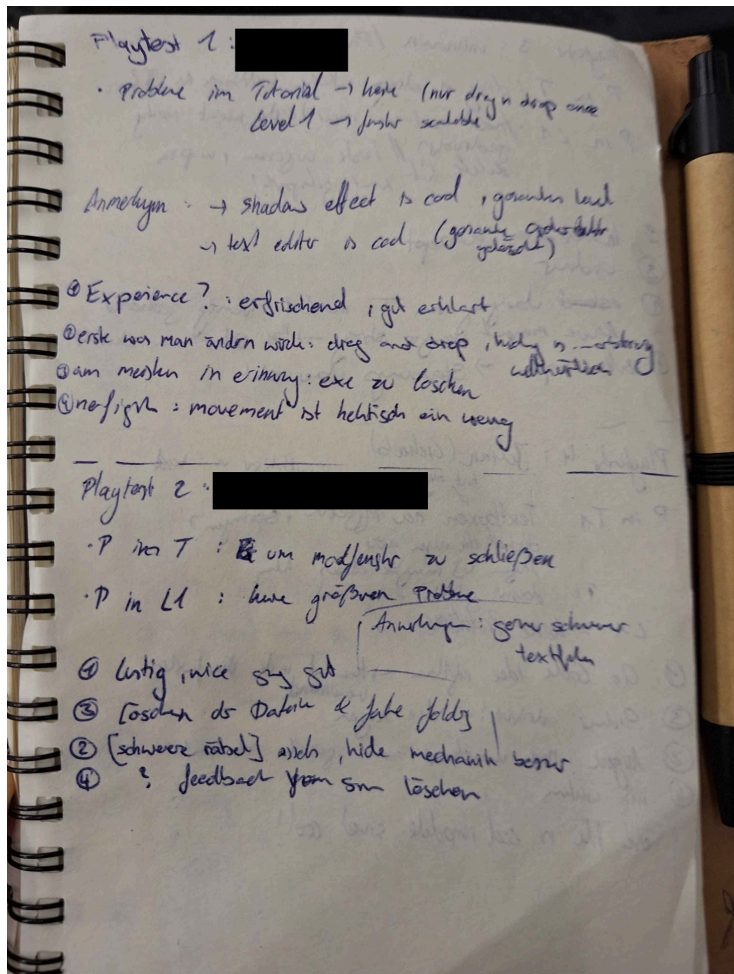 Playtest 1 :
• Probleme im Tutorial → keine (nur drag n drop once
Level 1 → fenster scalable
Anmerkungen : → shadow effect is cool , gesamtes Level
→ text editor is cool (gesamte
gelöscht)
① Experience? : erfrischend , gut erklärt
② erste was man ändern würde : drag and drop , hiding n
③ am meisten in erinnerung : exe zu löschen
④ : movement ist hektisch ein wenig
Playtest 2 :
• P im T : um zu schließen
• P in L1 : keine größeren Probleme
Anmerkungen : gerne schwerer
① lustig , nice ging gut
③ Löschen der Datein & fake
② [schwere rätsel] , hide mechanik besser
④ ? feedback vom löschen